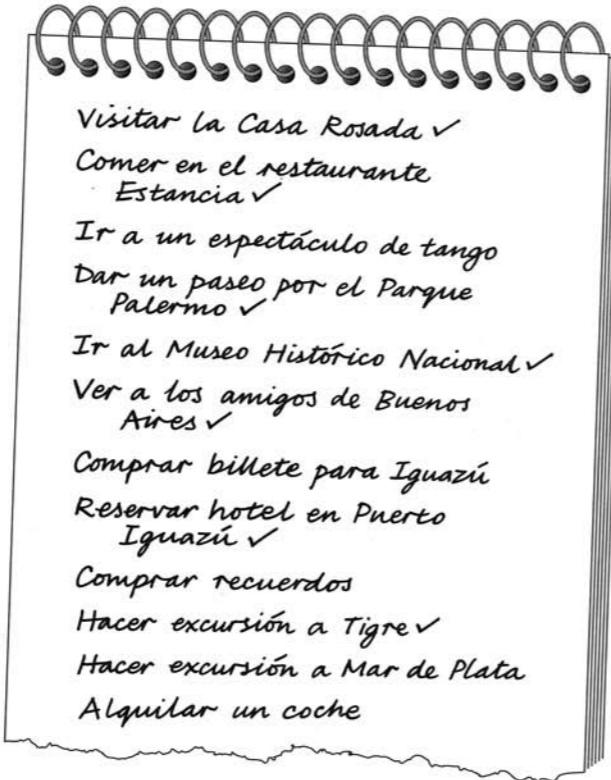 Visitar la Casa Rosada ✓
Comer en el restaurante
Estancia ✓
Ir a un espectáculo de tango
Dar un paseo por el Parque
Palermo ✓
Ir al Museo Histórico Nacional ✓
Ver a los amigos de Buenos
Aires ✓
Comprar billete para Iguazú
Reservar hotel en Puerto
Iguazú ✓
Comprar recuerdos
Hacer excursión a Tigre ✓
Hacer excursión a Mar de Plata
Alquilar un coche